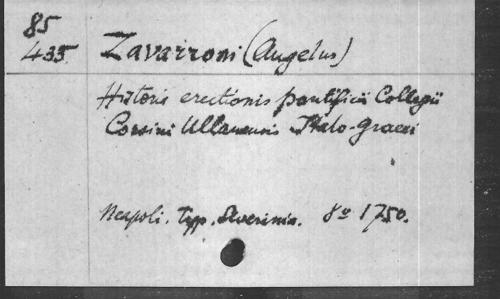 85
435. Zavarroni (Angelus)
Historia erectionis pontificii Collegii
Corsini Ullanensis Italo-Graeci
Neapoli. Typ. Severinia. 8º 1750.